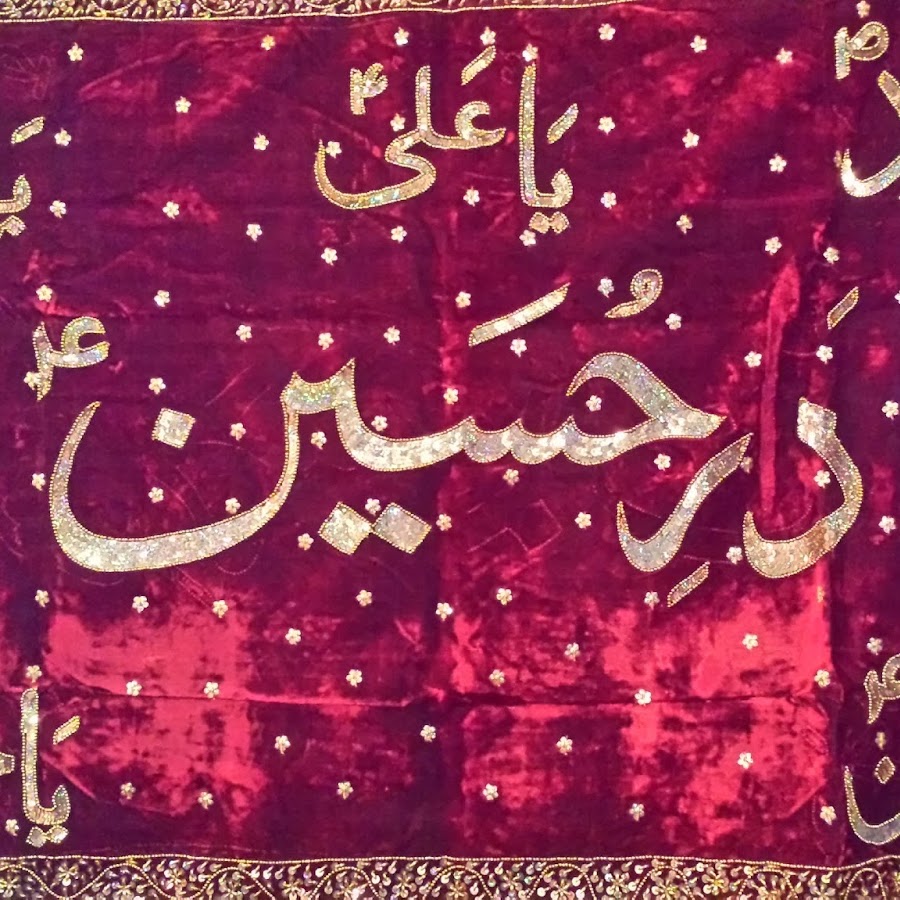 یَا عَلیؑ
دَرِ حُسَینؑ
یا